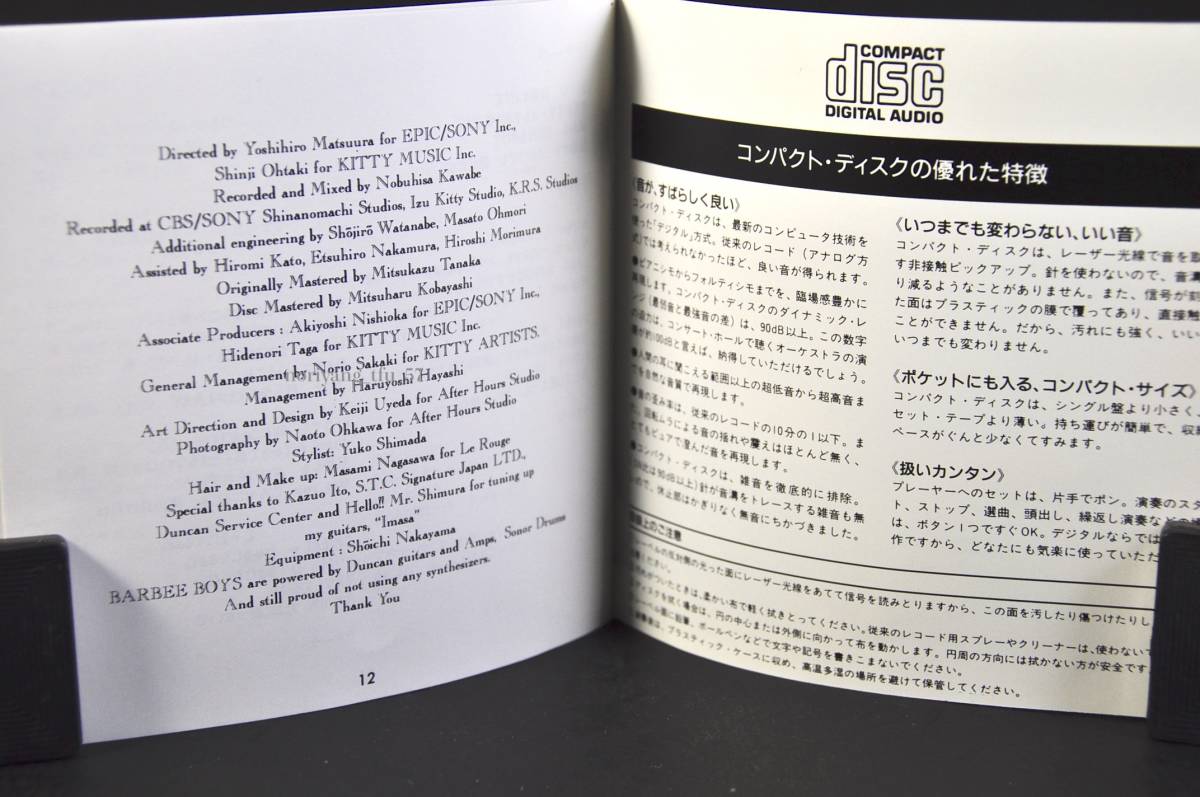 Directed by Yoshihiro Matsuura for EPIC/SONY Inc.,
Shinji Ohtaki for KITTY MUSIC Inc.
Recorded and Mixed by Nobuhisa Kawabe
Recorded at CBS/SONY Shinanomachi Studios, Izu Kitty Studio, K.R.S. Studios
Additional engineering by Shōjirō Watanabe, Masato Ohmori
Assisted by Hiromi Kato, Etsuhiro Nakamura, Hiroshi Morimura
Originally Mastered by Mitsukazu Tanaka
Disc Mastered by Mitsuharu Kobayashi
Associate Producers : Akiyoshi Nishioka for EPIC/SONY Inc.,
Hidenori Taga for KITTY MUSIC Inc.
General Management by Norio Sakaki for KITTY ARTISTS.
noriyang_tfu_57
Management by Haruyoshi Hayashi
Art Direction and Design by Keiji Uyeda for After Hours Studio
Photography by Naoto Ohkawa for After Hours Studio
Stylist: Yuko Shimada
Hair and Make up: Masami Nagasawa for Le Rouge
Special thanks to Kazuo Ito, S.T.C. Signature Japan LTD.,
Duncan Service Center and Hello!! Mr. Shimura for tuning up
my guitars, "Imasa"
Equipment : Shōichi Nakayama
BARBEE BOYS are powered by Duncan guitars and Amps, Sonor Drums
And still proud of not using any synthesizers.
Thank You
12
COMPACT
disc
DIGITAL AUDIO
コンパクト・ディスクの優れた特徴
《音が、すばらしく良い》
コンパクト・ディスクは、最新のコンピュータ技術を
使った「デジタル」方式。従来のレコード(アナログ方
式)では考えられなかったほど、良い音が得られます。
●ピアニシモからフォルティシモまでを、臨場感豊かに
再現します。コンパクト・ディスクのダイナミック・レ
ンジ(最弱音と最強音の差)は、90dB以上。この数字
の迫力は、コンサート・ホールで聴くオーケストラの演
奏が約100dBと言えば、納得していただけるでしょう。
●人間の耳に聞こえる範囲以上の超低音から超高音ま
でを自然な音質で再現します。
●音の歪み率は、従来のレコードの10分の1以下。ま
た、回転ムラによる音の揺れや震えはほとんど無く、
とてもピュアで澄んだ音を再現します。
●コンパクト・ディスクは、雑音を徹底的に排除。
(SN比は90dB以上)針が音溝をトレースする雑音も無
いので、休止部はかぎりなく無音にちかづきました。
《いつまでも変わらない、いい音》
コンパクト・ディスクは、レーザー光線で音を取
す非接触ピックアップ。針を使わないので、音溝
り減るようなことがありません。また、信号が刻
た面はプラスティックの膜で覆ってあり、直接触
ことができません。だから、汚れにも強く、いい
いつまでも変わりません。
《ポケットにも入る、コンパクト・サイズ》
コンパクト・ディスクは、シングル盤より小さく
セット・テープより薄い。持ち運びが簡単で、収納
ペースがぐんと少なくてすみます。
《扱いカンタン》
プレーヤーへのセットは、片手でポン。演奏のスタ
ト、ストップ、選曲、頭出し、繰返し演奏などの
は、ボタン1つですぐOK。デジタルならでは
作ですから、どなたにも気楽に使っていただ
上のご注意
レーベルの反対側の光った面にレーザー光線をあてて信号を読みとりますから、この面を汚したり傷つけたりし
がついたときは、柔かい布で軽く拭きとってください。従来のレコード用スプレーやクリーナーは、使わないで
ディスクを拭く場合は、円の中心または外側に向かって布を動かします。円周の方向には拭かない方が安全です
レーベル面に鉛筆、ボールペンなどで文字や記号を書きこまないでください。
演奏後は、プラスティック・ケースに収め、高温多湿の場所を避けて保管してください。